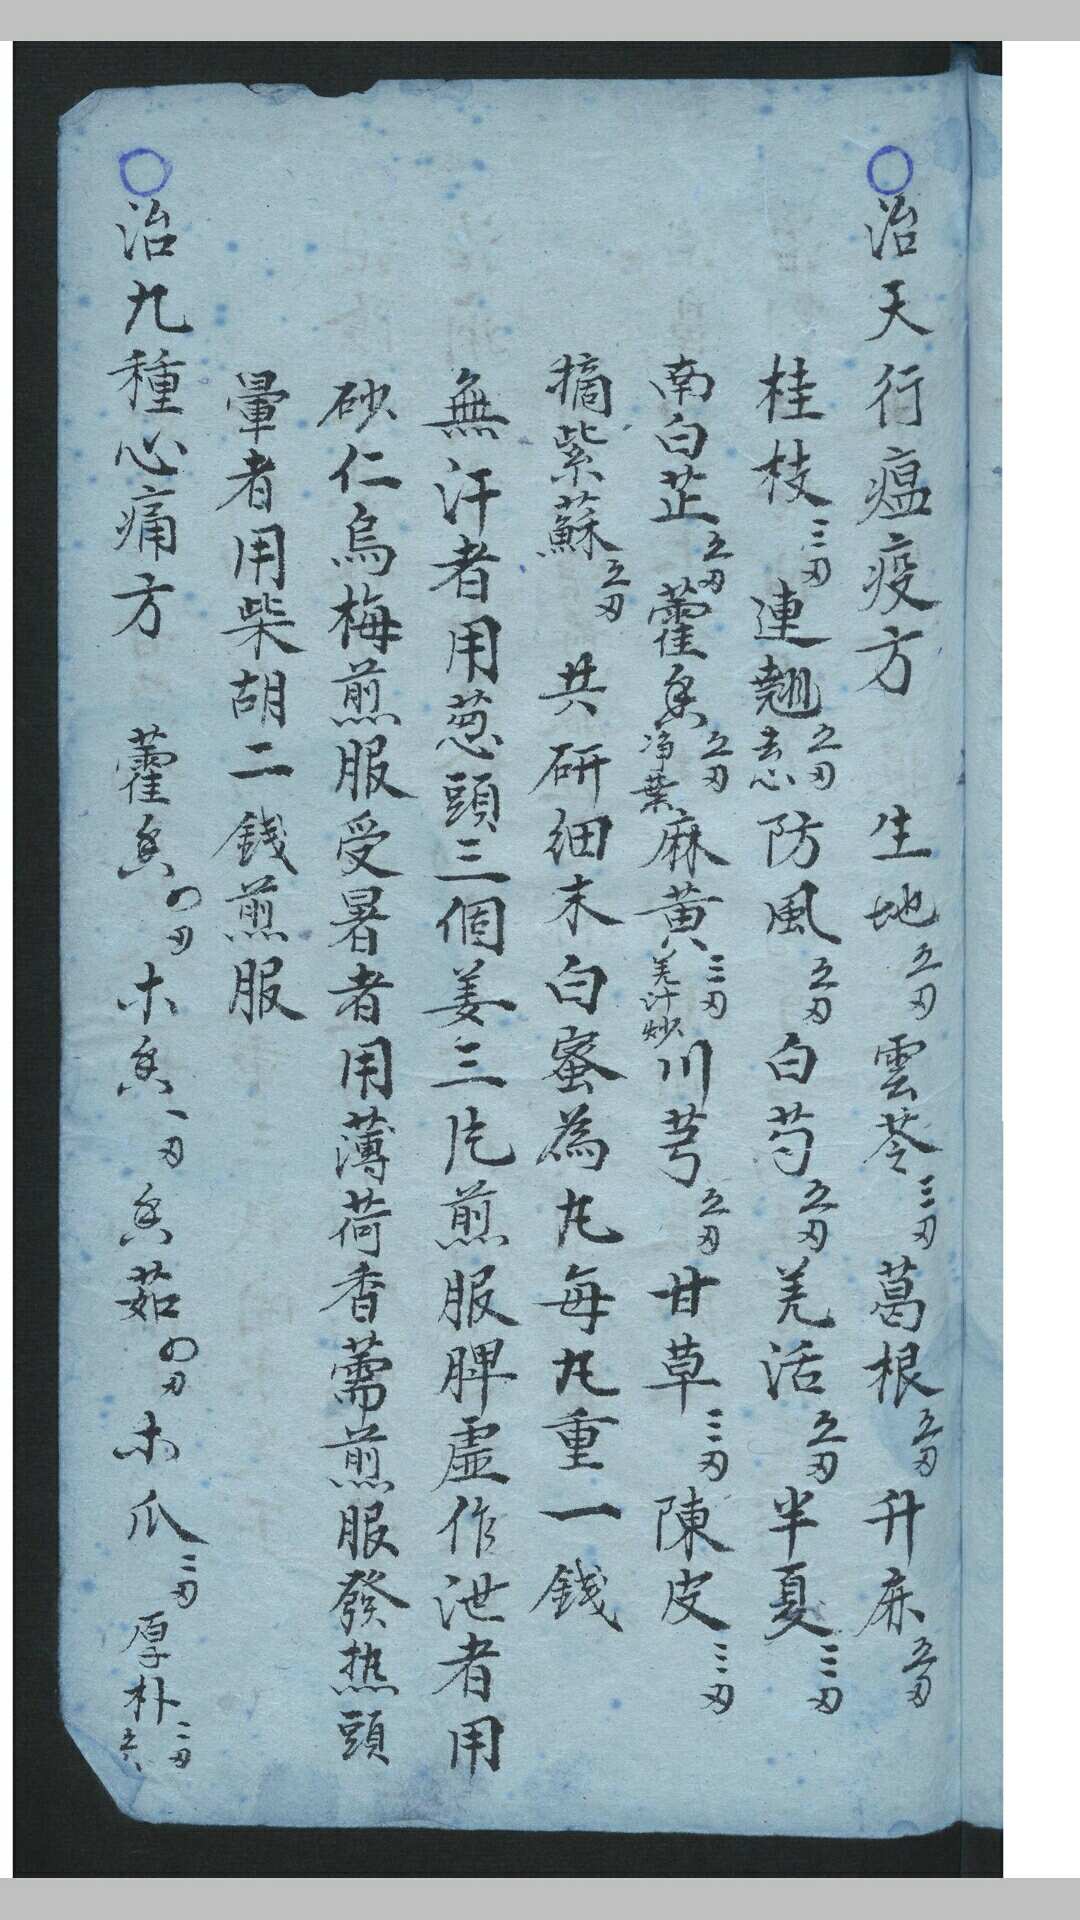 ○治天行瘟疫方 生地五刃雲苓三刃葛根五刃升麻五刃
桂枝三刃連翹去心五刃防風五刃白芍五刃羌活五刃半夏三刃
南白芷五刃藿香净葉五刃麻黄羌汁炒三刃川芎五刃甘草三刃陳皮三刃
摘紫蘇五刃 共研細末白蜜為丸每丸重一錢
無汗者用葱頭三個姜三片煎服脾虛作泄者用
砂仁烏梅煎服受暑者用薄荷香薷煎服發热頭
暈者用柴胡二錢煎服
○治九種心痛方 藿香四刃木香一刃香茹四刃木瓜三刃厚朴二刃